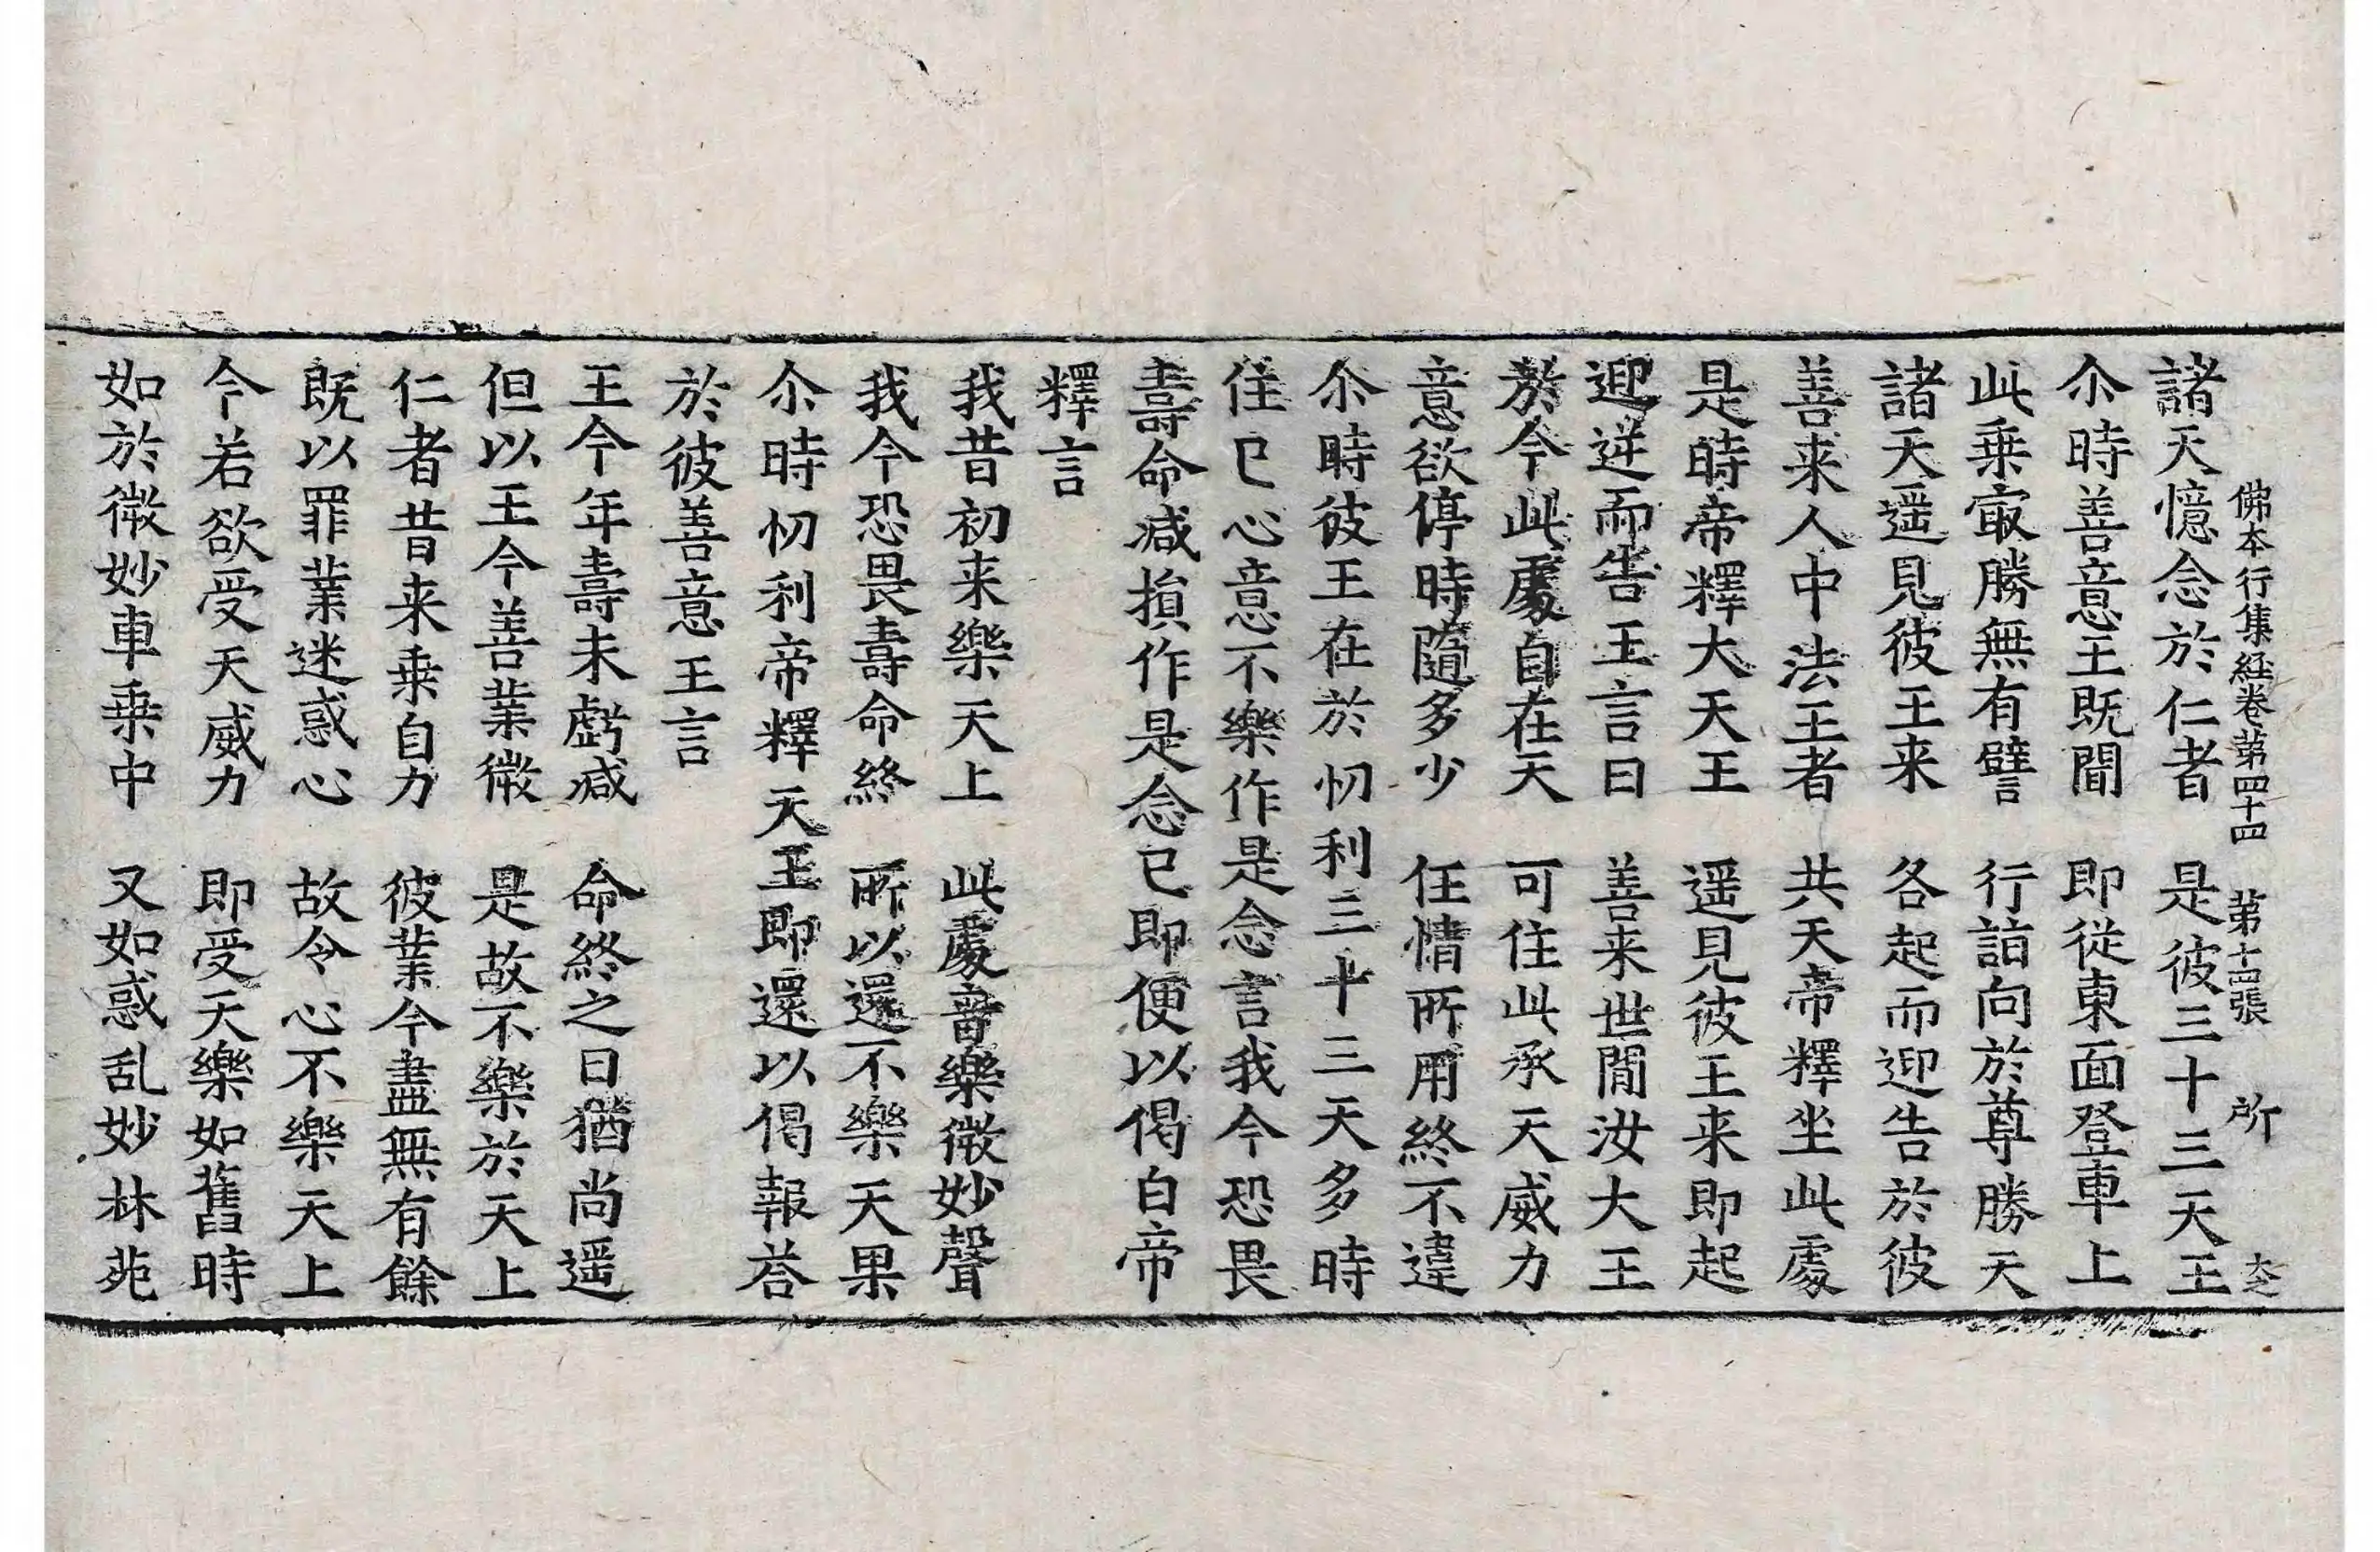 佛本行集経卷苐四十四 苐十四張 所
諸天憶念於仁者 是彼三十三天王
尒時善意王既聞 即從東面登車上
此乗㝡勝無有譬 行詣向於尊勝天
諸天遥見彼王来 各起而迎告於彼
善来人中法王者 共天帝釋坐此處
是時帝釋大天王 遥見彼王来即起
迎逆而告王言曰 善来世間汝大王
於今此處自在天 可住此承天威力
意欲停時隨多少 任情所用終不違
尒時彼王在於忉利三十三天多時
住已心意不樂作是念言我今恐畏
壽命减損作是念已即便以偈白帝
釋言
我昔初来樂天上 此處音樂微妙聲
我今恐畏壽命終 所以還不樂天果
尒時忉利帝釋天王即還以偈報荅
於彼善意王言
王今年壽未虧减 命終之日猶尚遥
但以王今善業微 是故不樂於天上
仁者昔来乗自力 彼業今盡無有餘
既以罪業迷惑心 故令心不樂天上
今若欲受天威力 即受天樂如舊時
如於微妙車乗中 又如惑乱妙林苑